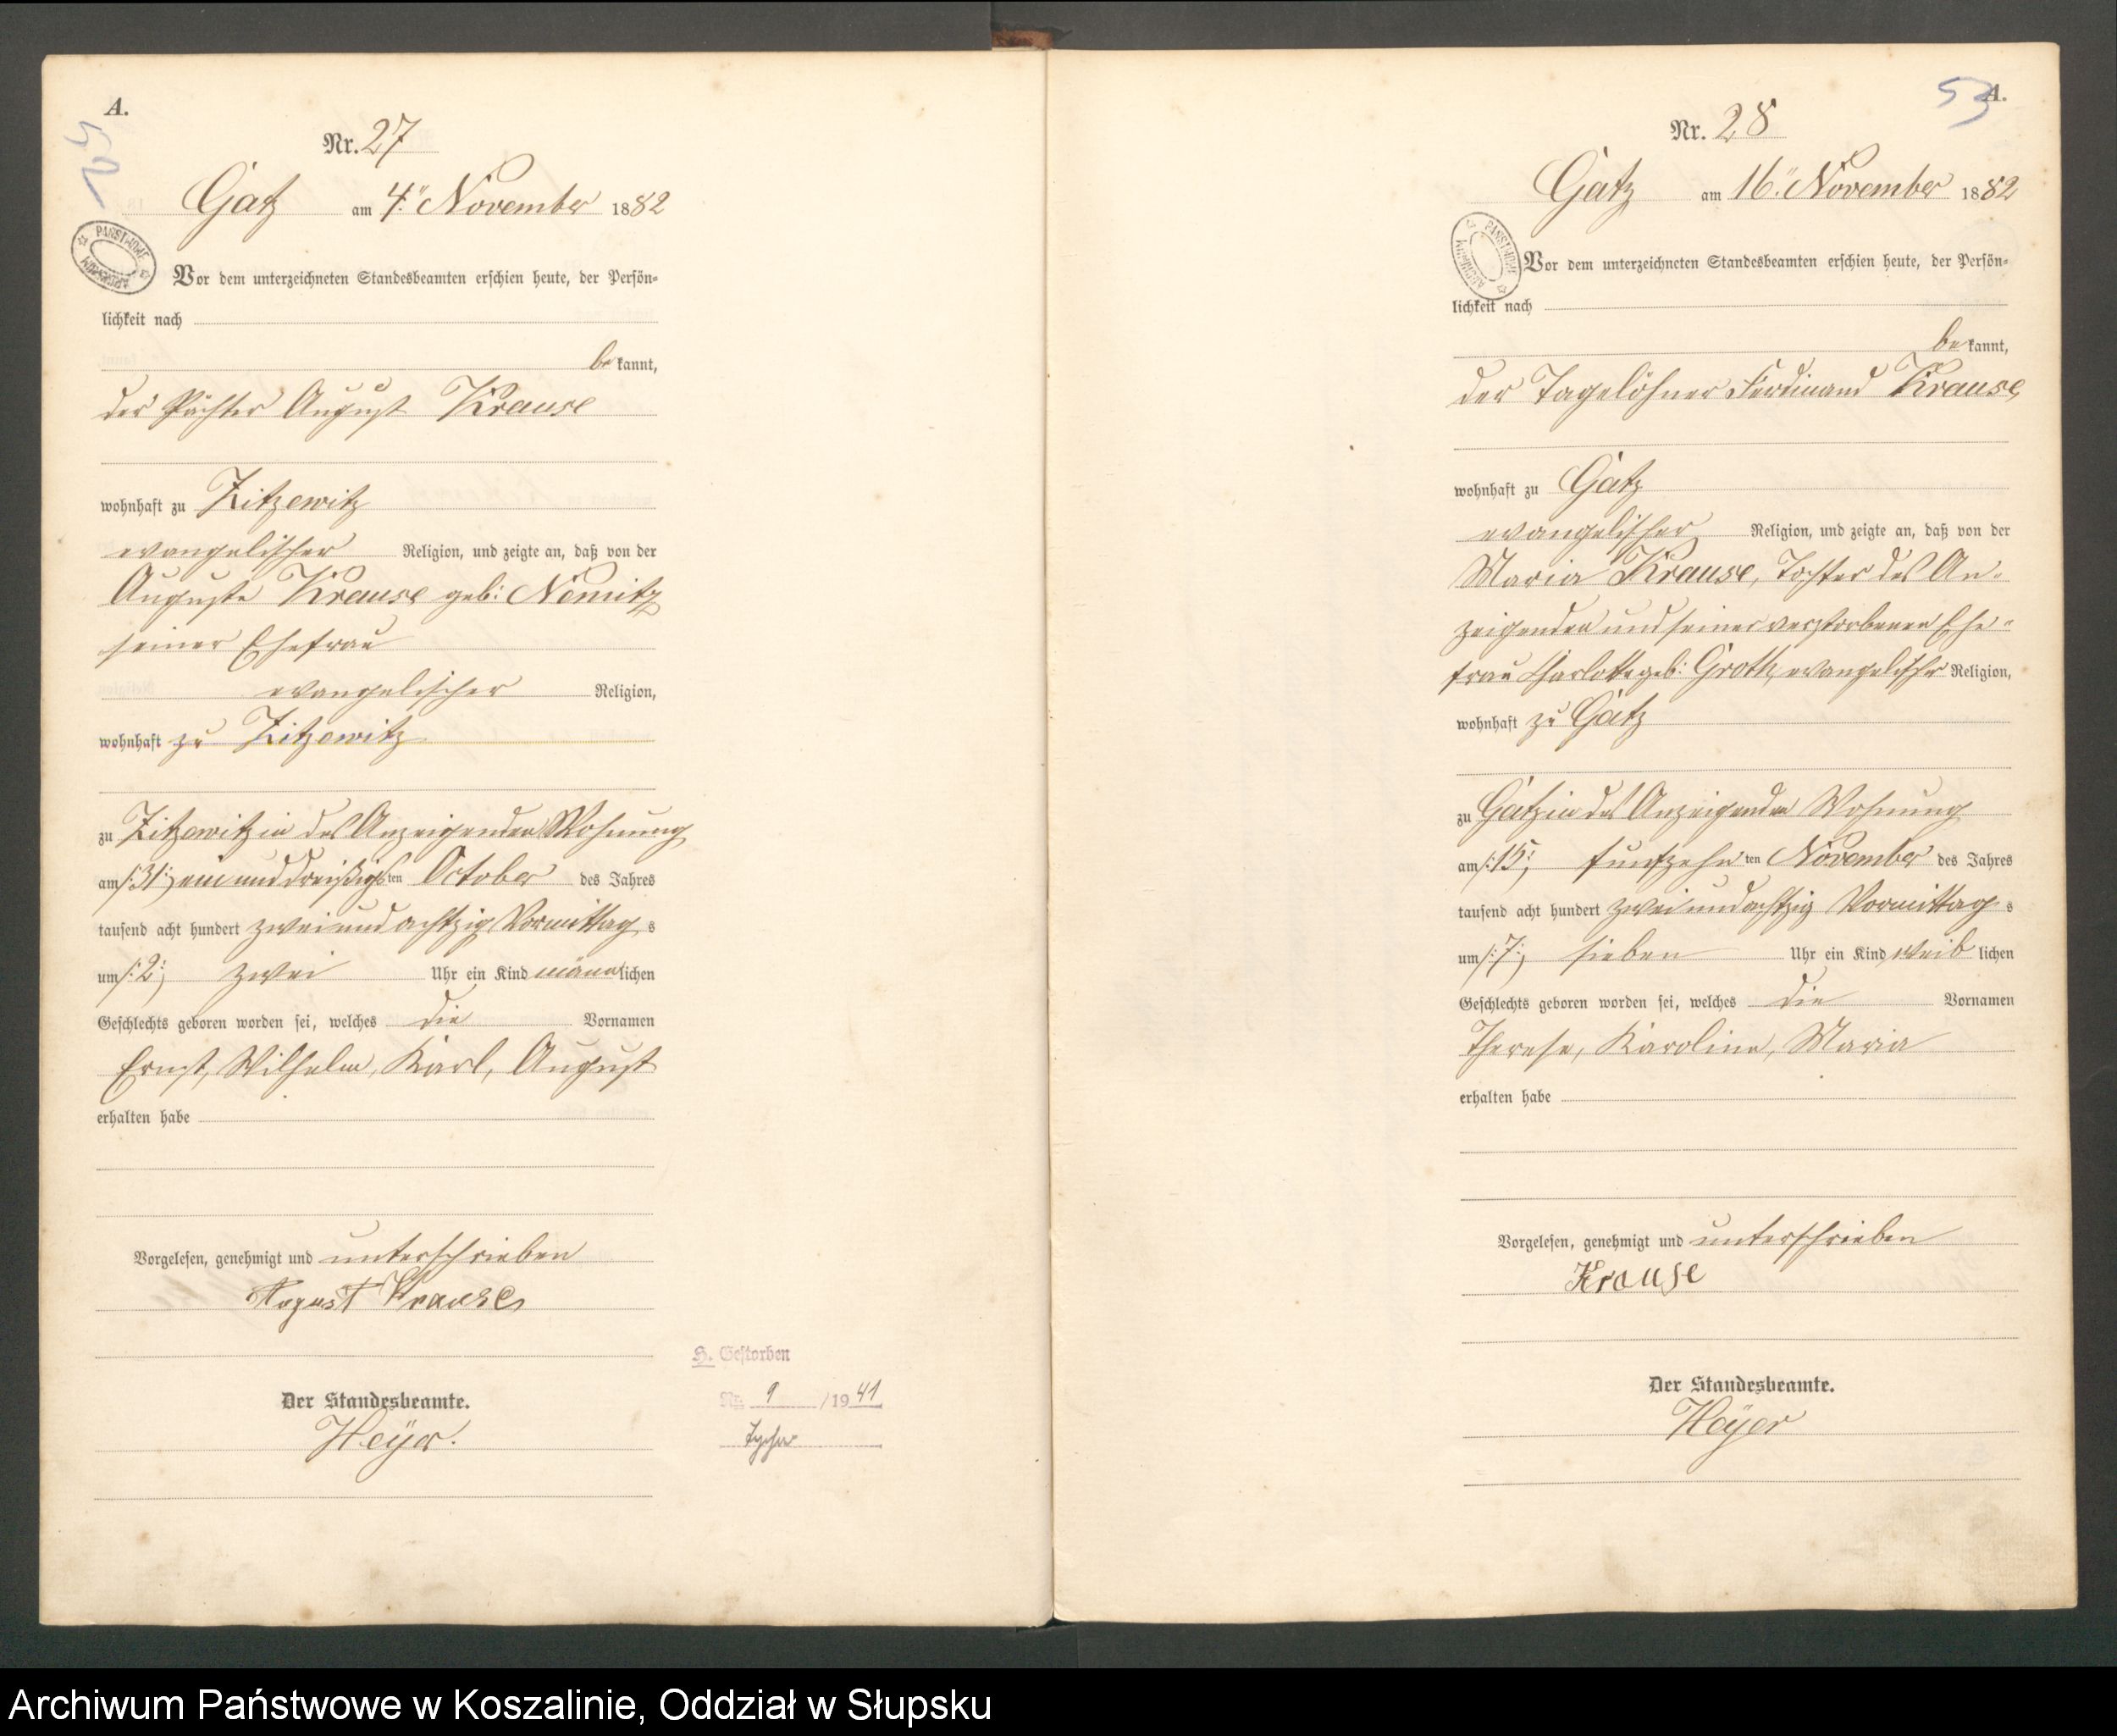 A.
52
Nr. 27
Gatz am 4ten November 1882
PAŃSTWOWE ARCHIWUM
Vor dem unterzeichneten Standesbeamten erschien heute, der Persön-
lichkeit nach
be kannt,
der Pächter August Krause
wohnhaft zu Zitzewitz
evangelischer Religion, und zeigte an, daß von der
Auguste Krause geb: Nemitz
seiner Ehefrau
evangelischer Religion,
wohnhaft zu Zitzewitz
zu Zitzewitz in des Anzeigenden Wohnung
am /:31:/ ein und dreißigsten October des Jahres
tausend acht hundert zwei und achtzig Vormittag s
um /:2:/ zwei Uhr ein Kind männ lichen
Geschlechts geboren worden sei, welches die Vornamen
Ernst, Wilhelm, Karl, August
erhalten habe
Vorgelesen, genehmigt und unterschrieben
August Krause
Der Standesbeamte.
Heÿer.
H. Gestorben
Nr. 9 /1941
A.
53
Nr. 28
Gatz am 16ten November 1882
PAŃSTWOWE ARCHIWUM
Vor dem unterzeichneten Standesbeamten erschien heute, der Persön-
lichkeit nach
be kannt,
der Tagelöhner Ferdinand Krause,
wohnhaft zu Gatz
evangelischer Religion, und zeigte an, daß von der
Maria Krause, Tochter des An-
zeigenden und seiner verstorbenen Ehe-
frau Charlotte geb: Groth, evangelischer Religion,
wohnhaft zu Gatz
zu Gatz in des Anzeigenden Wohnung
am /:15:/ funfzehn ten November des Jahres
tausend acht hundert zwei und achtzig Vormittag s
um /:7:/ sieben Uhr ein Kind weib lichen
Geschlechts geboren worden sei, welches die Vornamen
Therese, Karoline, Maria
erhalten habe
Vorgelesen, genehmigt und unterschrieben
Krause
Der Standesbeamte.
Heÿer
Archiwum Państwowe w Koszalinie, Oddział w Słupsku